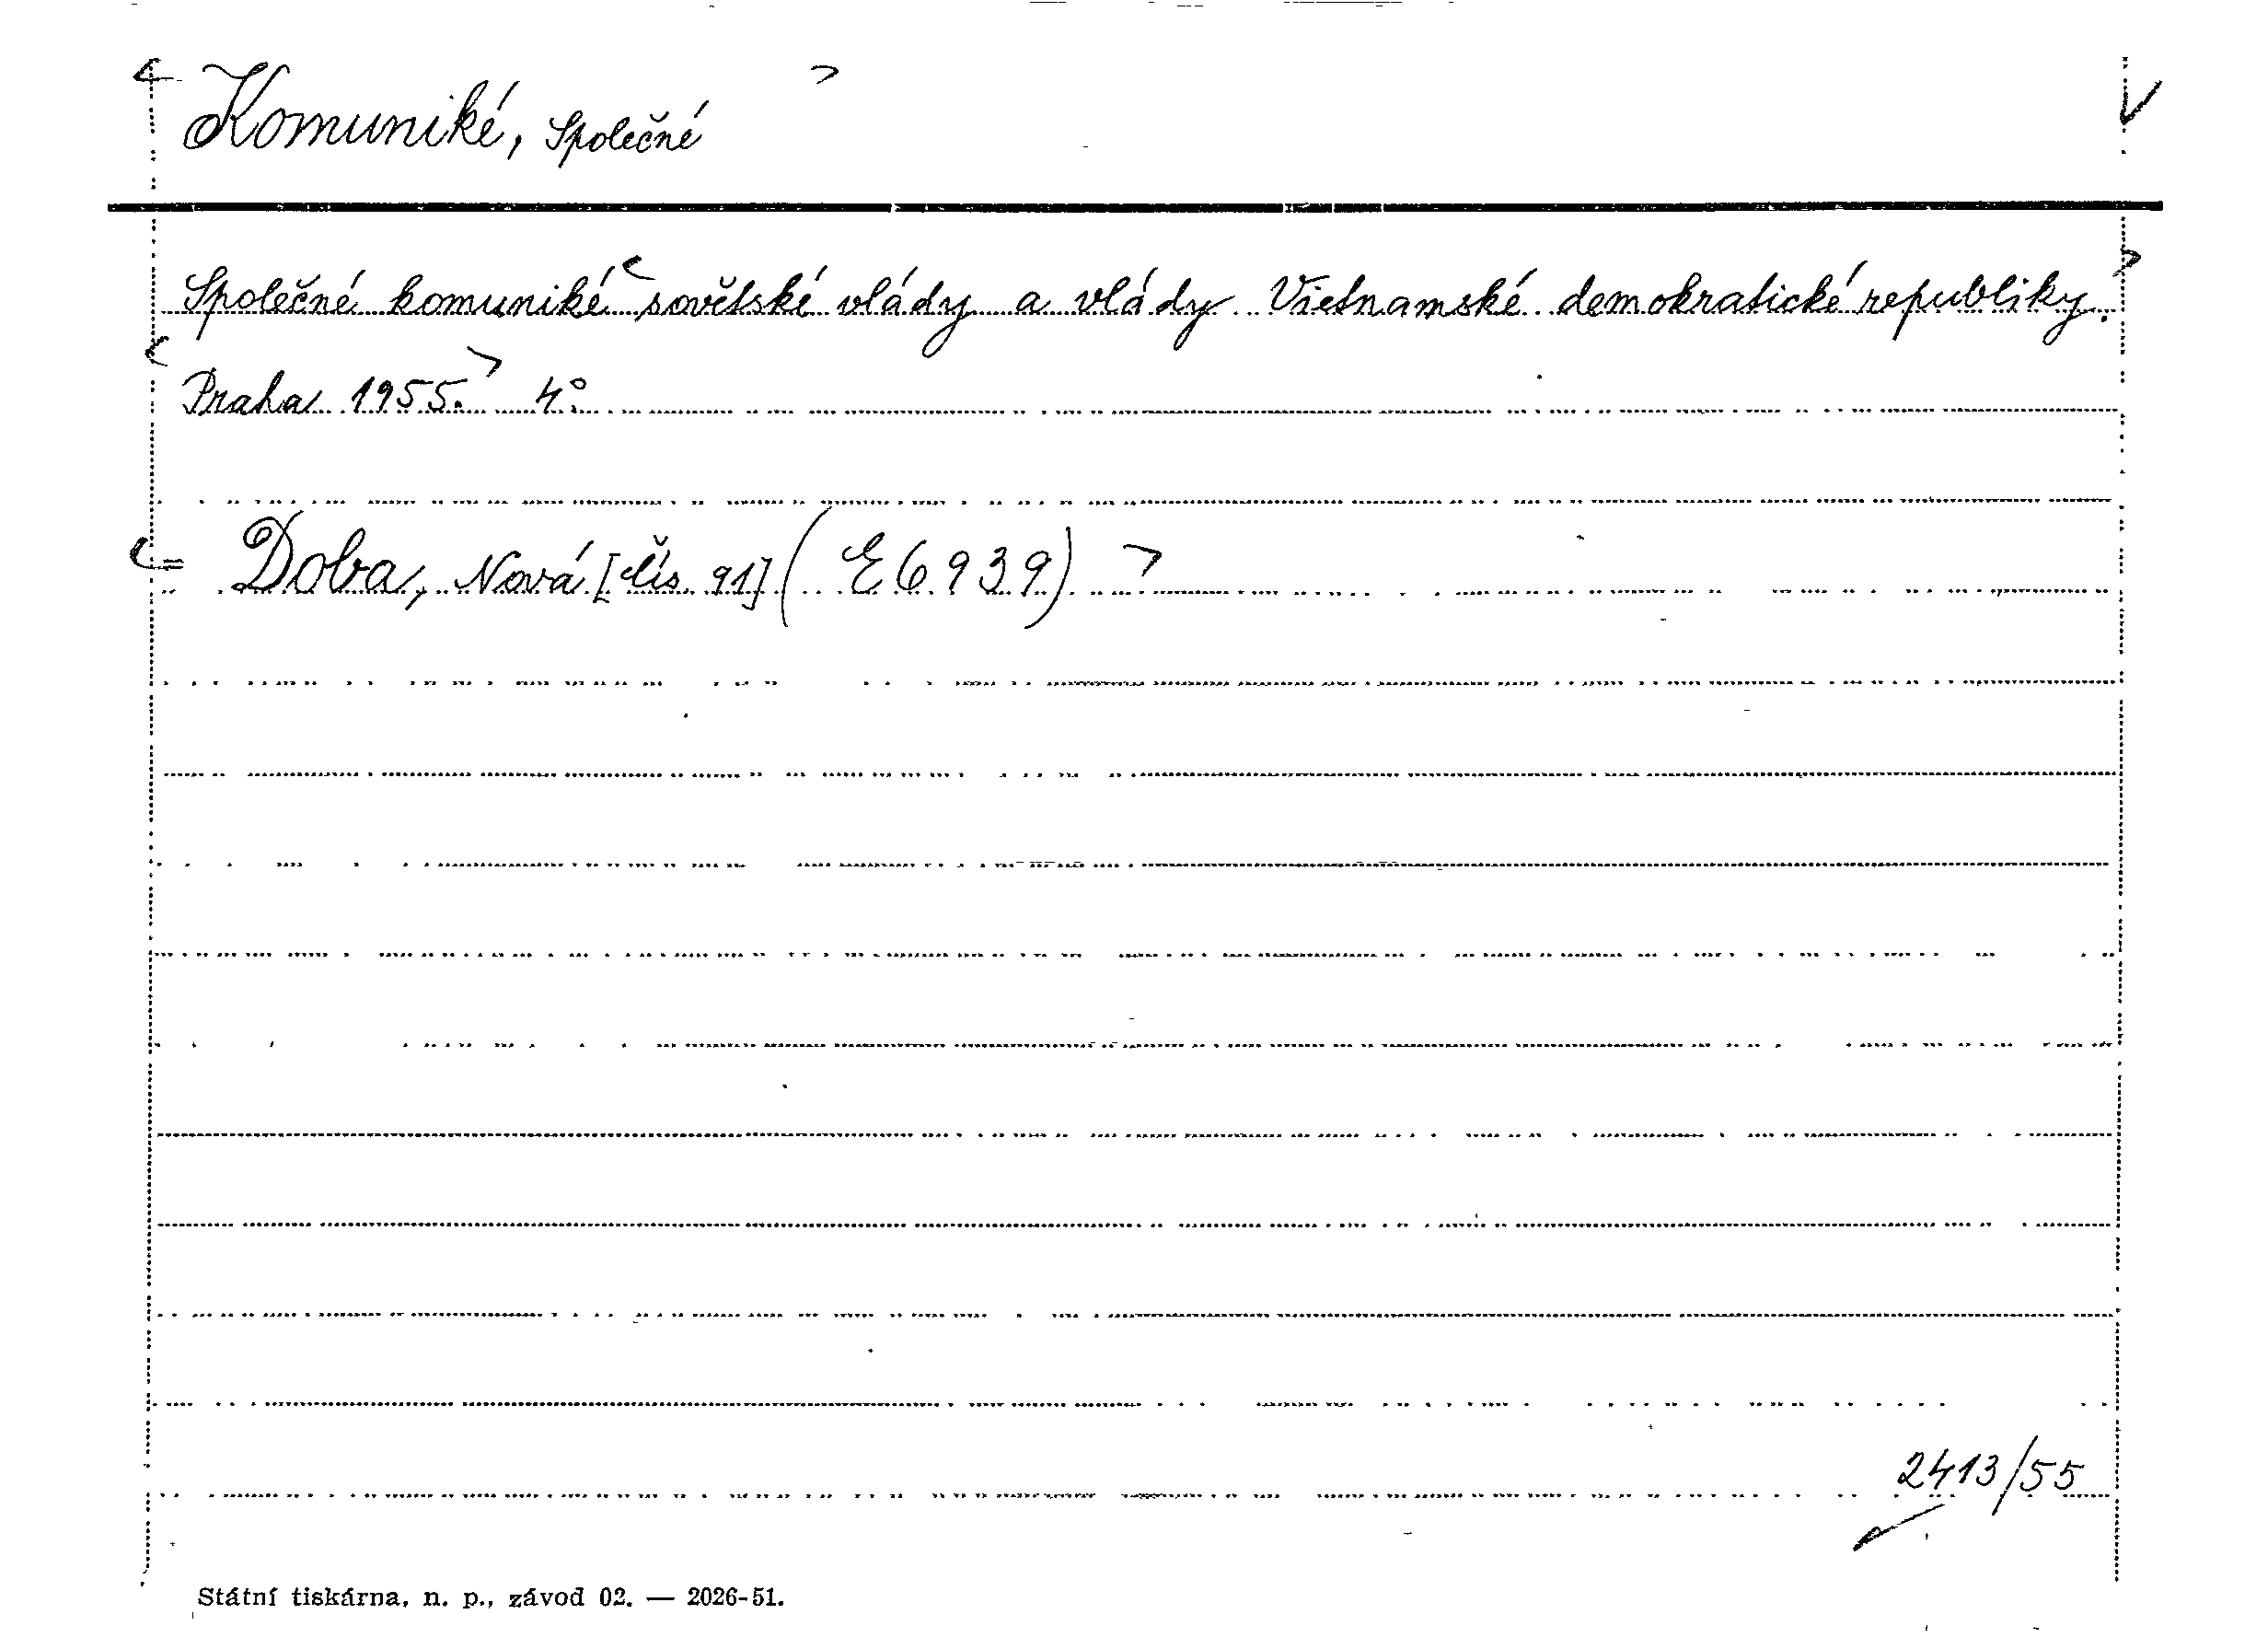 Komuniké, Společné
Společné komuniké sovětské vlády a vlády Vietnamské demokratické republiky.
Praha 1955. 4°
= Doba, Nová [čís. 91] (E 6939)
2413/55
Státní tiskárna, n. p., závod 02. — 2026-51.